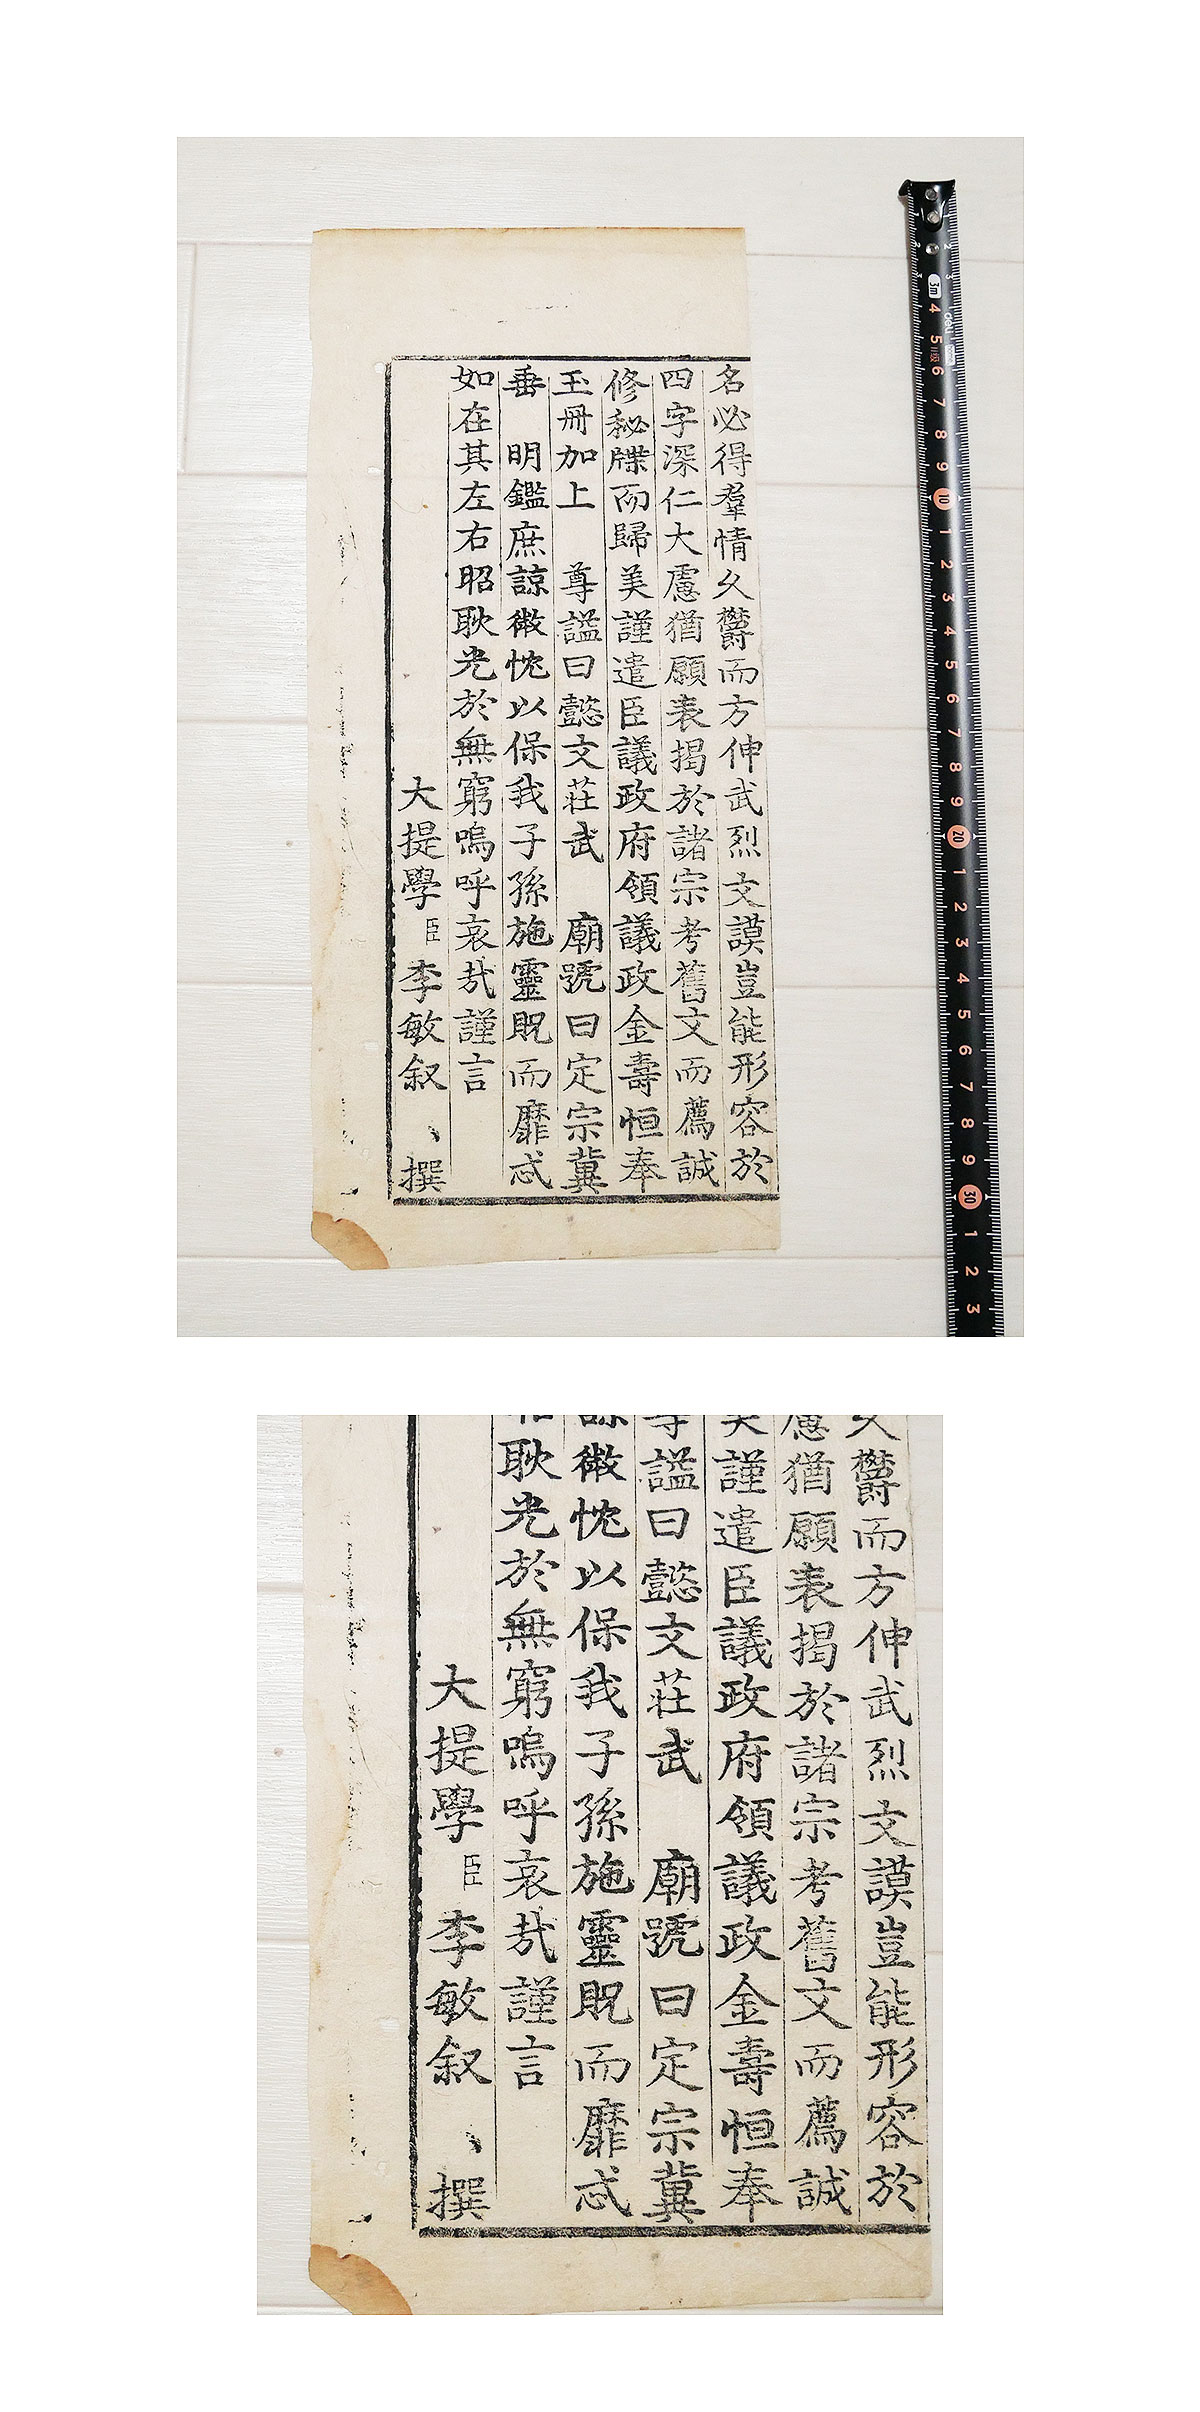 名必得羣情久鬱而方伸武烈文謨豈能形容於
四字深仁大慮猶願表揭於諸宗考舊文而薦誠
修秘牒而歸美謹遣臣議政府領議政金壽恒奉
玉冊加上　尊謚曰懿文莊武　廟號曰定宗冀
垂　明鑑庶諒微忱以保我子孫施靈貺而靡忒
如在其左右昭耿光於無窮嗚呼哀哉謹言
大提學臣李敏叙　撰
2 3 3m 4 deli 5 6 7 8 9 10 1 2 3 4 5 6 7 8 9 20 1 2 3 4 5 6 7 8 9 30 1 2 3
鬱而方伸武烈文謨豈能形容於
慮猶願表揭於諸宗考舊文而薦誠
美謹遣臣議政府領議政金壽恒奉
尊謚曰懿文莊武　廟號曰定宗冀
諒微忱以保我子孫施靈貺而靡忒
耿光於無窮嗚呼哀哉謹言
大提學臣李敏叙　撰